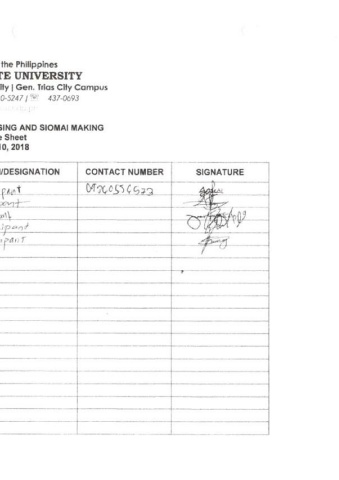 the Philippines
TE UNIVERSITY
ity | Gen. Trias City Campus
0-5247 | 437-0693
SING AND SIOMAI MAKING
e Sheet
10, 2018
/DESIGNATION CONTACT NUMBER SIGNATURE
pant
pant
ipant
pant